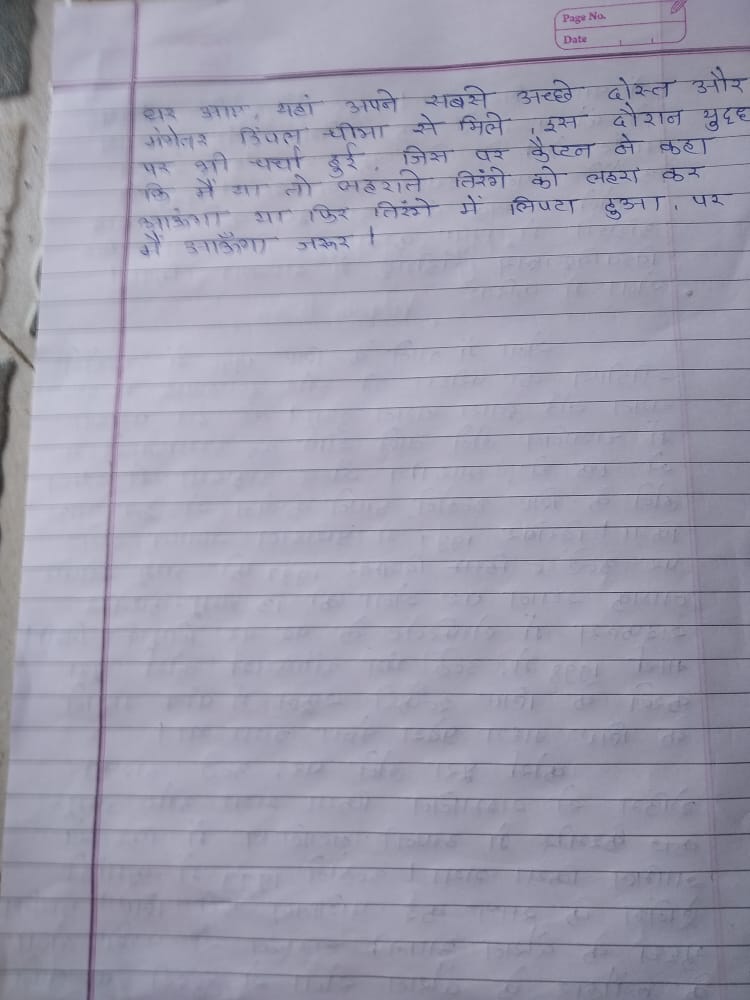 Page No.
Date
घर आए, यहां अपने सबसे अच्छे दोस्त और
मंगेतर डिंपल चीमा से मिले, इस दौरान युद्ध
पर भी चर्चा हुई, जिस पर कैप्टन ने कहा
कि मैं या तो लहराते तिरंगे को लहरा कर
आऊंगा या फिर तिरंगे में लिपटा हुआ, पर
मैं आऊँगा जरूर।